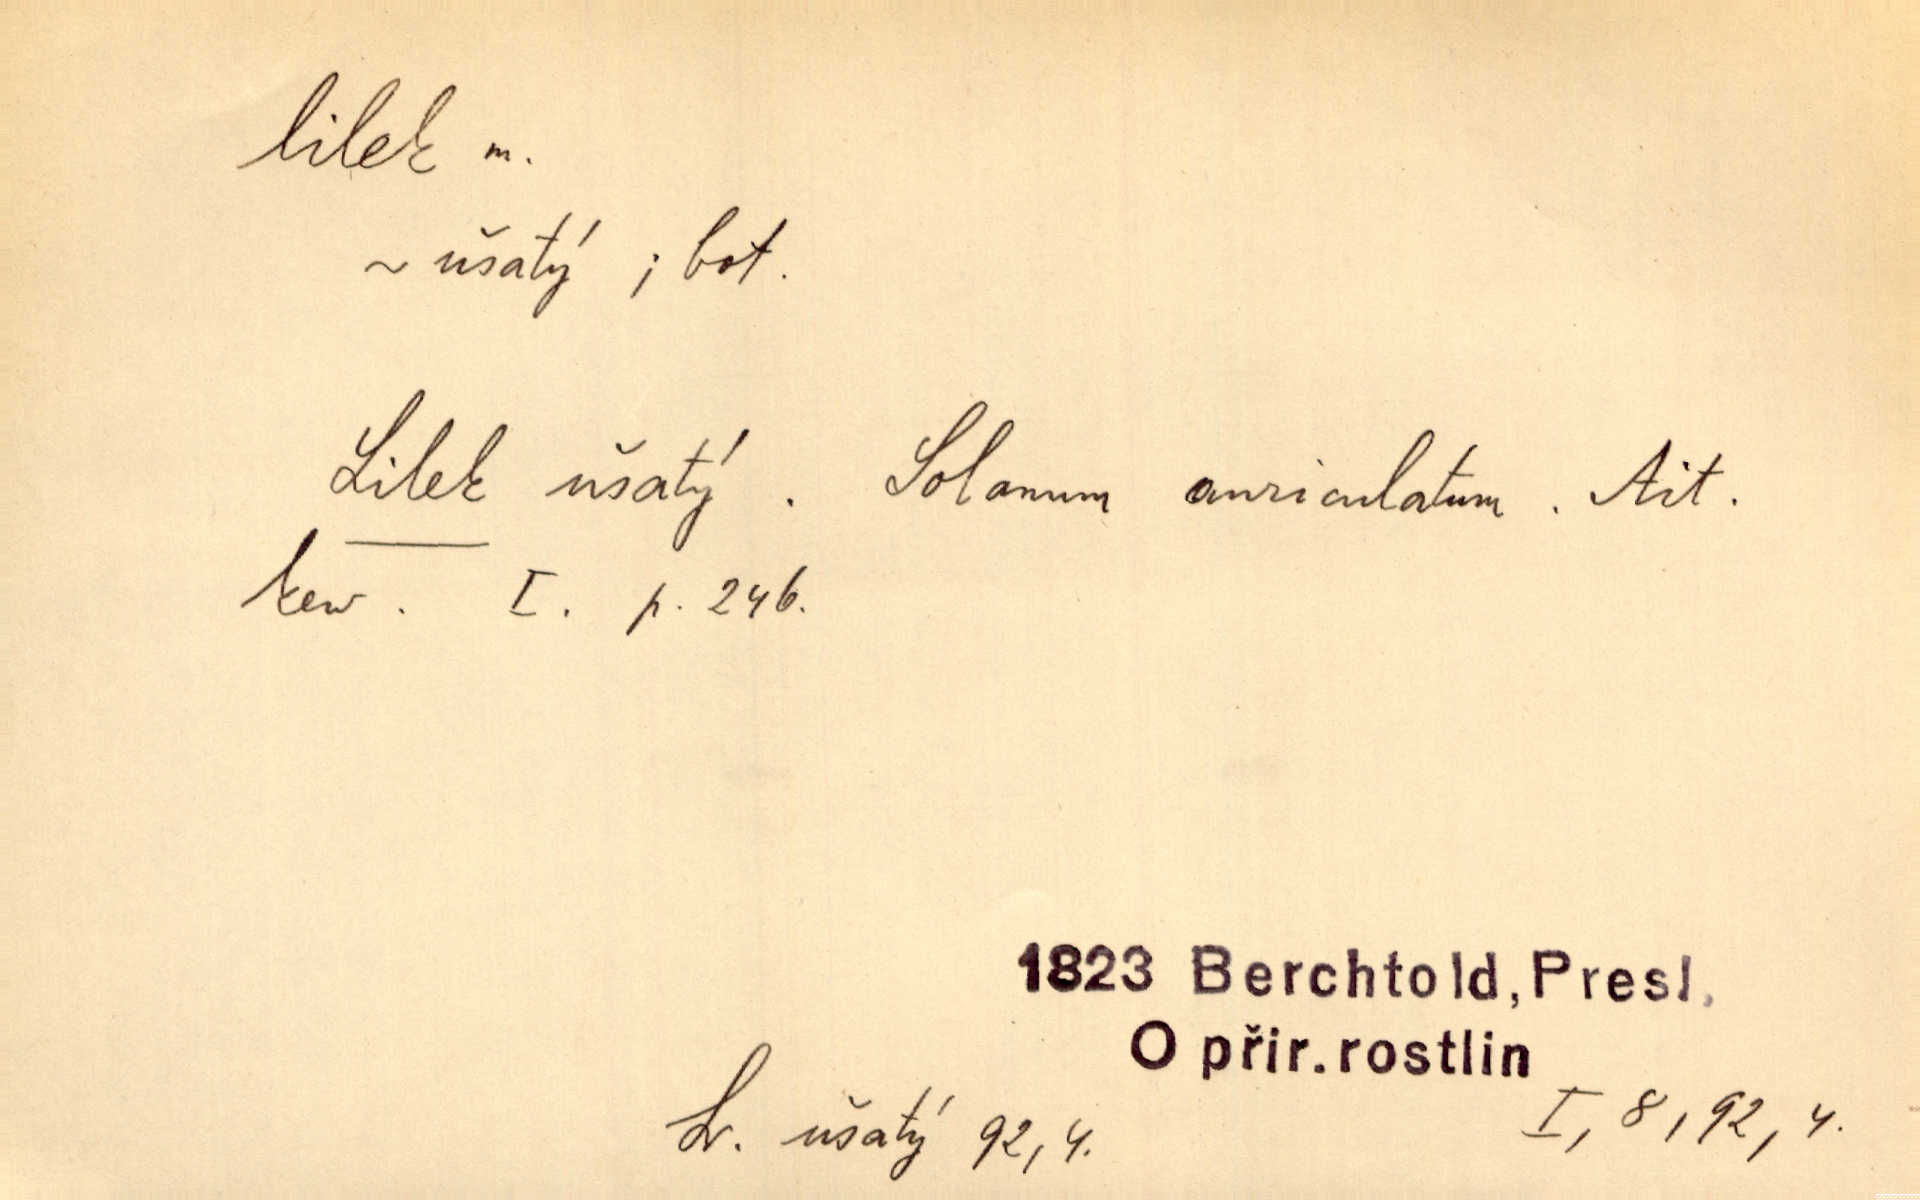 lilek m.
~ ušatý ; bot.
Lilek ušatý . Solanum auriculatum . Ait.
kew . I. p. 246.
1823 Berchtold, Presl,
O přir. rostlin
L. ušatý 92, 4.
I, 8, 92, 4.